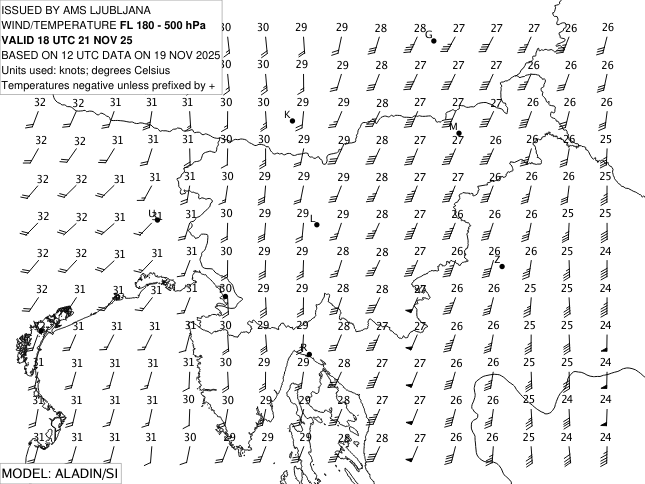 ISSUED BY AMS LJUBLJANA
WIND/TEMPERATURE FL 180 - 500 hPa
VALID 18 UTC 21 NOV 25
BASED ON 12 UTC DATA ON 19 NOV 2025
Units used: knots; degrees Celsius
Temperatures negative unless prefixed by +
30 30 29 29 28 28 27 27 27 26 26
G
30 30 29 29 28 28 27 27 27 26 26
32 32 31 31 31 30 30 29 29 28 27 27 27 26 26 26
K
M
32 32 31 31 31 30 30 29 29 28 27 27 26 26 26 25
32 32 31 31 31 30 29 29 29 28 27 27 26 26 26 25
32 32 31 31 31 30 29 29 29 28 27 26 26 26 25 25
U
L
32 32 31 31 31 30 29 29 28 28 27 26 26 26 25 24
Z
32 31 31 31 31 30 29 29 28 28 27 26 26 25 25 24
31 31 31 31 31 30 29 29 28 27 27 26 26 25 25 24
R
31 31 31 31 31 30 29 29 28 27 27 26 26 25 25 24
31 31 31 31 30 30 29 29 28 28 27 26 26 25 24 24
31 31 31 31 30 29 29 29 28 28 27 26 26 25 24 24
MODEL: ALADIN/SI